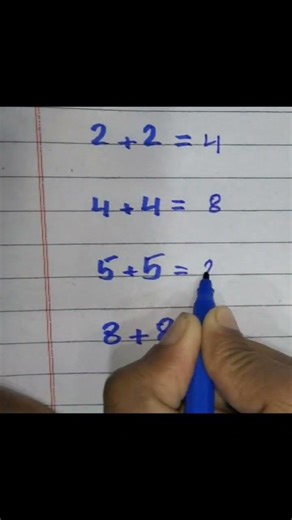 2+2=4
4+4=8
5+5=
8+8